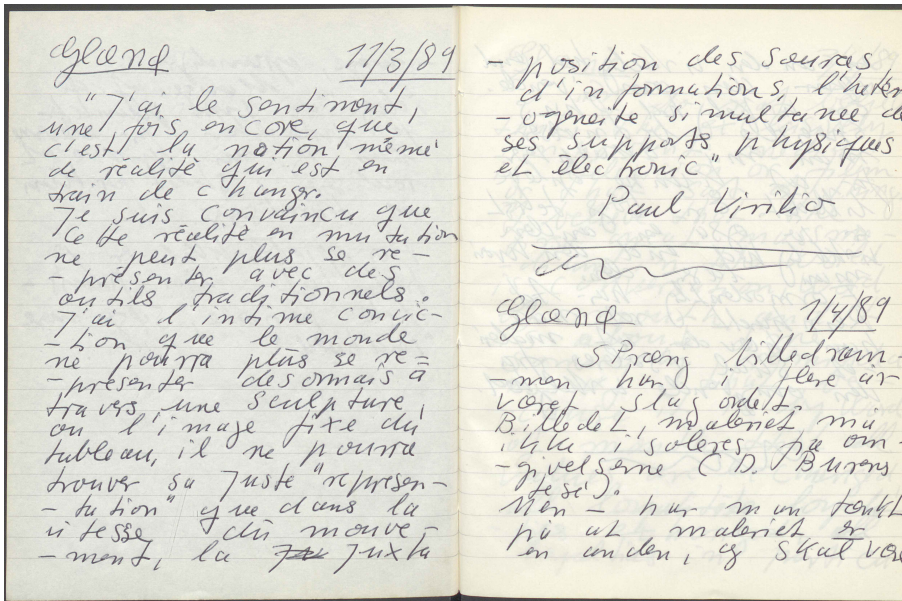 Gland 11/3/89
"J'ai le sentiment,
une fois encore, que
c'est la notion même
de réalité qui est en
train de changr.
Je suis convaincu que
cette réalité en mutation
ne peut plus se re-
-présenter avec des
outils traditionnels.
J'ai l'intime convic-
-tion que le monde
ne pourra plus se re=
-présenter desormais à
travers une sculpture,
ou l'image fixe du
tableau, il ne pourra
trouver sa juste "represen-
-tation" que dans la
vitesse du mouve-
-ment, la juxta
- position des sources
d'informations, l'hetér
-ogeneite simultanee de
ses supports physiques
et électronic"
Paul Virilio
Gland 1/4/89
Spræng billedram-
-men har i flere år
været slagordet.
Billedet, maleriet må
ikke isoleres fra om-
-givelserne (D. Burens
tesi).
Men - har man tænkt
på at maleriet er
en anden, og skal være